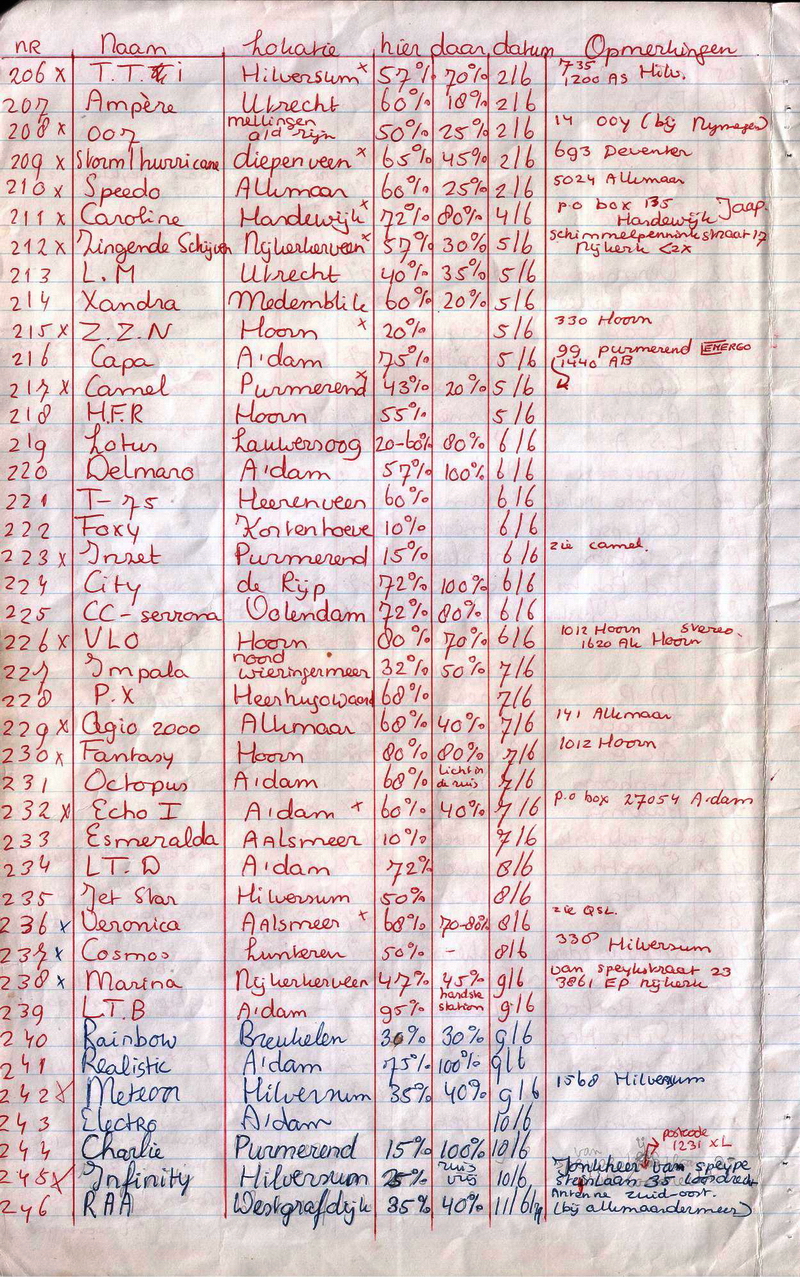 NR Naam Lokatie hier daar datum Opmerkingen
206 x T.T.i Hilversum x 57% 70% 2/6 735 1200 AS Hilv.
207 Ampère Utrecht 60% 18% 2/6
208 x 007 mellingen a/d rijn 50% 25% 2/6 14 ooy (bij Nijmegen)
209 x Storm/hurricane diepenveen x 65% 45% 2/6 693 Deventer
210 x Speedo Alkmaar 60% 25% 2/6 5024 Alkmaar
211 x Caroline Hardewijk x 72% 80% 4/6 p.o box 135 Hardewijk Jaap.
212 x Zingende Schijven Nijkerkerveen x 57% 30% 5/6 schimmelpenninkstraat 17 Nijkerk <2x
213 L.M Utrecht 40% 35% 5/6
214 Xandra Medemblik 60% 20% 5/6
215 x Z.Z.N Hoorn x 20% 5/6 330 Hoorn
216 Capa A'dam 75% 5/6 99 purmerend EMERGO
217 x Camel Purmerend x 43% 20% 5/6 1440 AB
218 H.F.R Hoorn 55% 5/6
219 Lotus Lauwersoog 20-60% 80% 6/6
220 Delmaro A'dam 57% 100% 6/6
221 T-75 Heerenveen 60% 6/6
222 Foxy Kortenhoeve 10% 6/6
223 x Inzet Purmerend 15% 6/6 zie camel.
224 City de Rijp 72% 100% 6/6
225 CC-serrona Volendam 72% 80% 6/6
226 x VLO Hoorn 80% 70% 6/6 1012 Hoorn stereo. 1620 AK Hoorn
227 Impala noord wieringermeer 32% 50% 7/6
228 P.X Heerhugowaard 68% 7/6
229 x Agio 2000 Alkmaar 68% 40% 7/6 141 Alkmaar
230 x Fantasy Hoorn 80% 80% 7/6 1012 Hoorn
231 Octopus A'dam 68% licht in de ruis 7/6
232 x Echo I A'dam x 60% 40% 7/6 P.o box 27054 A'dam
233 Esmeralda Aalsmeer 10% 7/6
234 L.T.D A'dam 72% 8/6
235 Jet Star Hilversum 50% 8/6
236 x Veronica Aalsmeer x 68% 70-88% 8/6 zie QSL.
237 x Cosmos Lunteren 50% - 8/6 330 Hilversum
238 x Marina Nijkerkerveen 47% 45% 9/6 van speykstraat 23 3861 EP nijkerk
239 L.T.B A'dam 95% hardste station 9/6
240 Rainbow Breukelen 30% 30% 9/6
241 Realistic A'dam 75% 100% 9/6
242 x Meteoor Hilversum 35% 40% 9/6 1568 Hilversum
243 Electro A'dam 10/6
244 Charlie Purmerend 15% 100% 10/6 postcode 1231 XL
245 x Infinity Hilversum 25% ruis vrij 10/6 Jonkheer van speype steinlaan 35 Loosdrecht
246 RAA Westgrafdijk 35% 40% 11/6 Antenne zuid-oost. (bij alkmaardermeer)